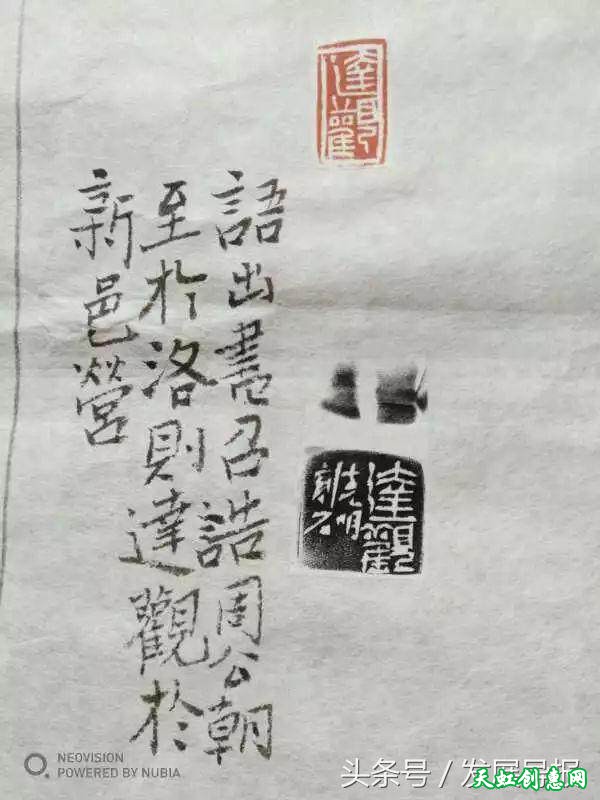 達觀
語出書召誥周公朝
至於洛則達觀於
新邑營
達觀
NEOVISION
POWERED BY NUBIA
头条号/发展
天虹创惠网